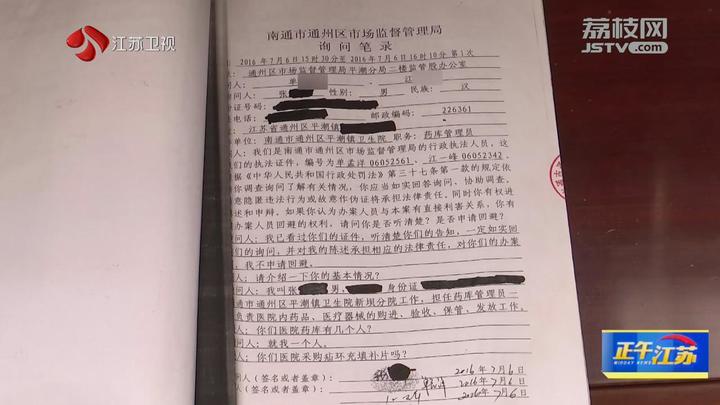 江苏卫视
荔枝网
JSTV.com
南通市通州区市场监督管理局
询问笔录
2016年7月6日15时30分至2016年7月6日16时10分第1次
通州区市场监督管理局平潮分局二楼监管股办公室
问人: 单 江
问人: 张 性别: 男 民族: 汉
份证号码:
电话: 邮政编码: 226361
江苏省通州区平潮镇
单位: 南通市通州区平潮镇卫生院 职务: 药库管理员
问人: 我们是南通市通州区市场监督管理局的行政执法人员, 这
们的执法证件, 编号为单孟洋06052561、江一峰06052342。
据《中华人民共和国行政处罚法》第三十七条第一款的规定依
你调查询问了解有关情况, 你应当如实回答询问、协助调查。
意隐匿违法行为或故意作伪证将承担法律责任。同时你有权进
述和申辩。如果你认为办案人员与本案有直接利害关系, 你有
办案人员回避的权利。请问你是否听清楚? 是否申请回避?
问人: 我已看过你们的证件, 听清楚你们的告知, 一定如实回
们的询问, 并对我的陈述承担相应的法律责任, 对你们的办案
, 我不申请回避。
人: 请介绍一下你的基本情况?
问人: 我叫张 男, 身份证
通市通州区平潮镇卫生院新坝分院工作, 担任药库管理员一
负责医院内药品、医疗器械的购进、验收、保管、发放工作。
人: 你们医院药库有几个人?
问人: 就我一个人。
人: 你们医院采购疝环充填补片吗?
问人(签名或者盖章): 2016年7月6日
人(签名或者盖章): 2016年7月6日
2016年7月6日
正午江苏
MIDDAY NEWS